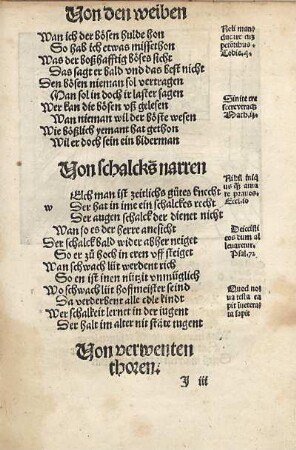 Von den weiben
Wan ich der bösen hulde hon
So hab ich etwas missethon
Was der boßhafftig böses sicht
Das sagt er bald vnd das best nicht
Den bösen nieman sol vertragen
Man sol in doch ir laster sagen
Wer kan die bösen vß gelesen
Wan nieman wil der böste wesen
Wie bößlich yemant hat gethon
Wil er doch sein ein biderman
Von schalcks narren
Elch man ist zeitlichs gůtes knecht
w Der hat in ime ein schalckes recht
Der augen schalck der dienet nicht
Wan so es der herre ansicht
Der schalck bald wider abher neiget
So er zů hoch in eren vff steiget
Wan schwach lüt werdent rich
So en ist inen nützit vnmüglich
Wo schwach lüt hoffmeister seind
Da verderbent alle edle kindt
Wer schalkeit lernet in der iugent
Der halt im alter nit stäte tugent
Von verwenten
thoren.
J iii
Noli
Eccli.10
Deiecisti
eos dum al
leuarentur.
Psal.72
Quod no
ua testa ca
pit inueterata
sapit